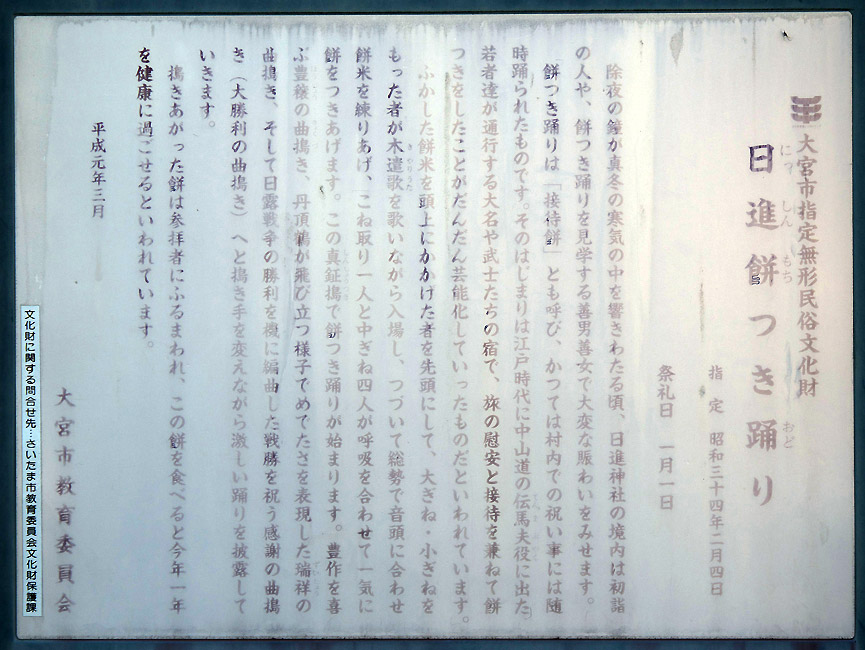 大宮市指定無形民俗文化財
日進餅つき踊り
にっしんもち おど
指定 昭和三十四年二月四日
祭礼日 一月一日
除夜の鐘が真冬の寒気の中を響きわたる頃、日進神社の境内は初詣
の人や、餅つき踊りを見学する善男善女で大変な賑わいをみせます。
餅つき踊りは「接待餅」とも呼び、かつては村内での祝い事には随
時踊られたものです。そのはじまりは江戸時代に中山道の伝馬夫役に出た
若者達が通行する大名や武士たちの宿で、旅の慰安と接待を兼ねて餅
つきをしたことがだんだん芸能化していったものだといわれています。
ふかした餅米を頭上にかかげた者を先頭にして、大ぎね・小ぎねを
もった者が木遣歌を歌いながら入場し、つづいて総勢で音頭に合わせ
きやりうた
餅米を練りあげ、こね取り一人と中ぎね四人が呼吸を合わせて一気に
餅をつきあげます。この真鉦搗で餅つき踊りが始まります。豊作を喜
ぶ豊穣の曲搗き、丹頂鶴が飛び立つ様子でめでたさを表現した瑞祥の
曲搗き、そして日露戦争の勝利を機に編曲した戦勝を祝う感謝の曲搗
き（大勝利の曲搗き）へと搗き手を変えながら激しい踊りを披露して
いきます。
搗きあがった餅は参拝者にふるまわれ、この餅を食べると今年一年
を健康に過ごせるといわれています。
平成元年三月
大宮市教育委員会
文化財に関する問合せ先…さいたま市教育委員会文化財保護課